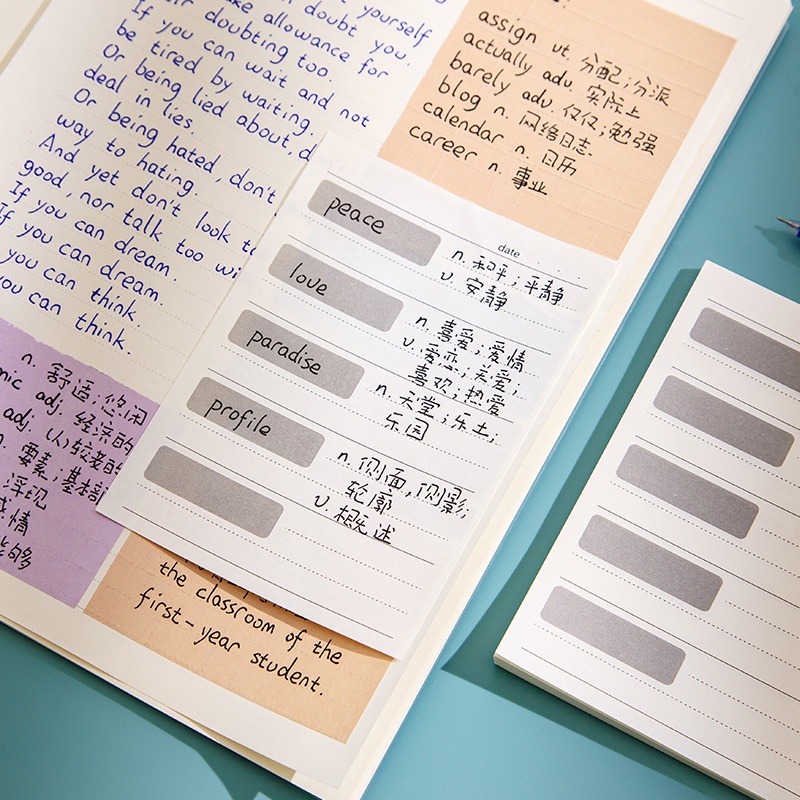 yourself
allowance for doubt you.
doubting too.
If you can wait and not
be tired by waiting.
Or being lied about, d
deal in lies.
Or being hated, don't
way to hating.
And yet don't look to
good, nor talk too wi
If you can dream.
If you can dream.
you can think.
you can think.
assign vt. 分配；分派
actually adv. 实际上
barely adv. 仅仅；勉强
blog n. 网络日志.
calendar n. 日历
career n. 事业
date
peace
n. 和平；平静
v. 安静
love
n. 喜爱；爱情
v. 爱恋；关爱；
喜欢；热爱
paradise
n. 天堂；乐土；
乐园
profile
n. 侧面，侧影；
轮廓
v. 概述
n. 舒适；悠闲
mic adj. 经济的
adj. (人)较差的
n. 要素；基本
浮现
感情
能够
the classroom of the
first-year student.